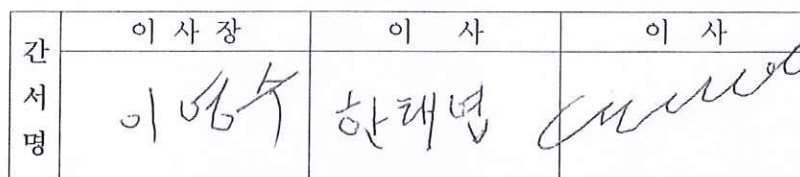 간서명
이 사 장
이 사
이 사
이영수
한태협